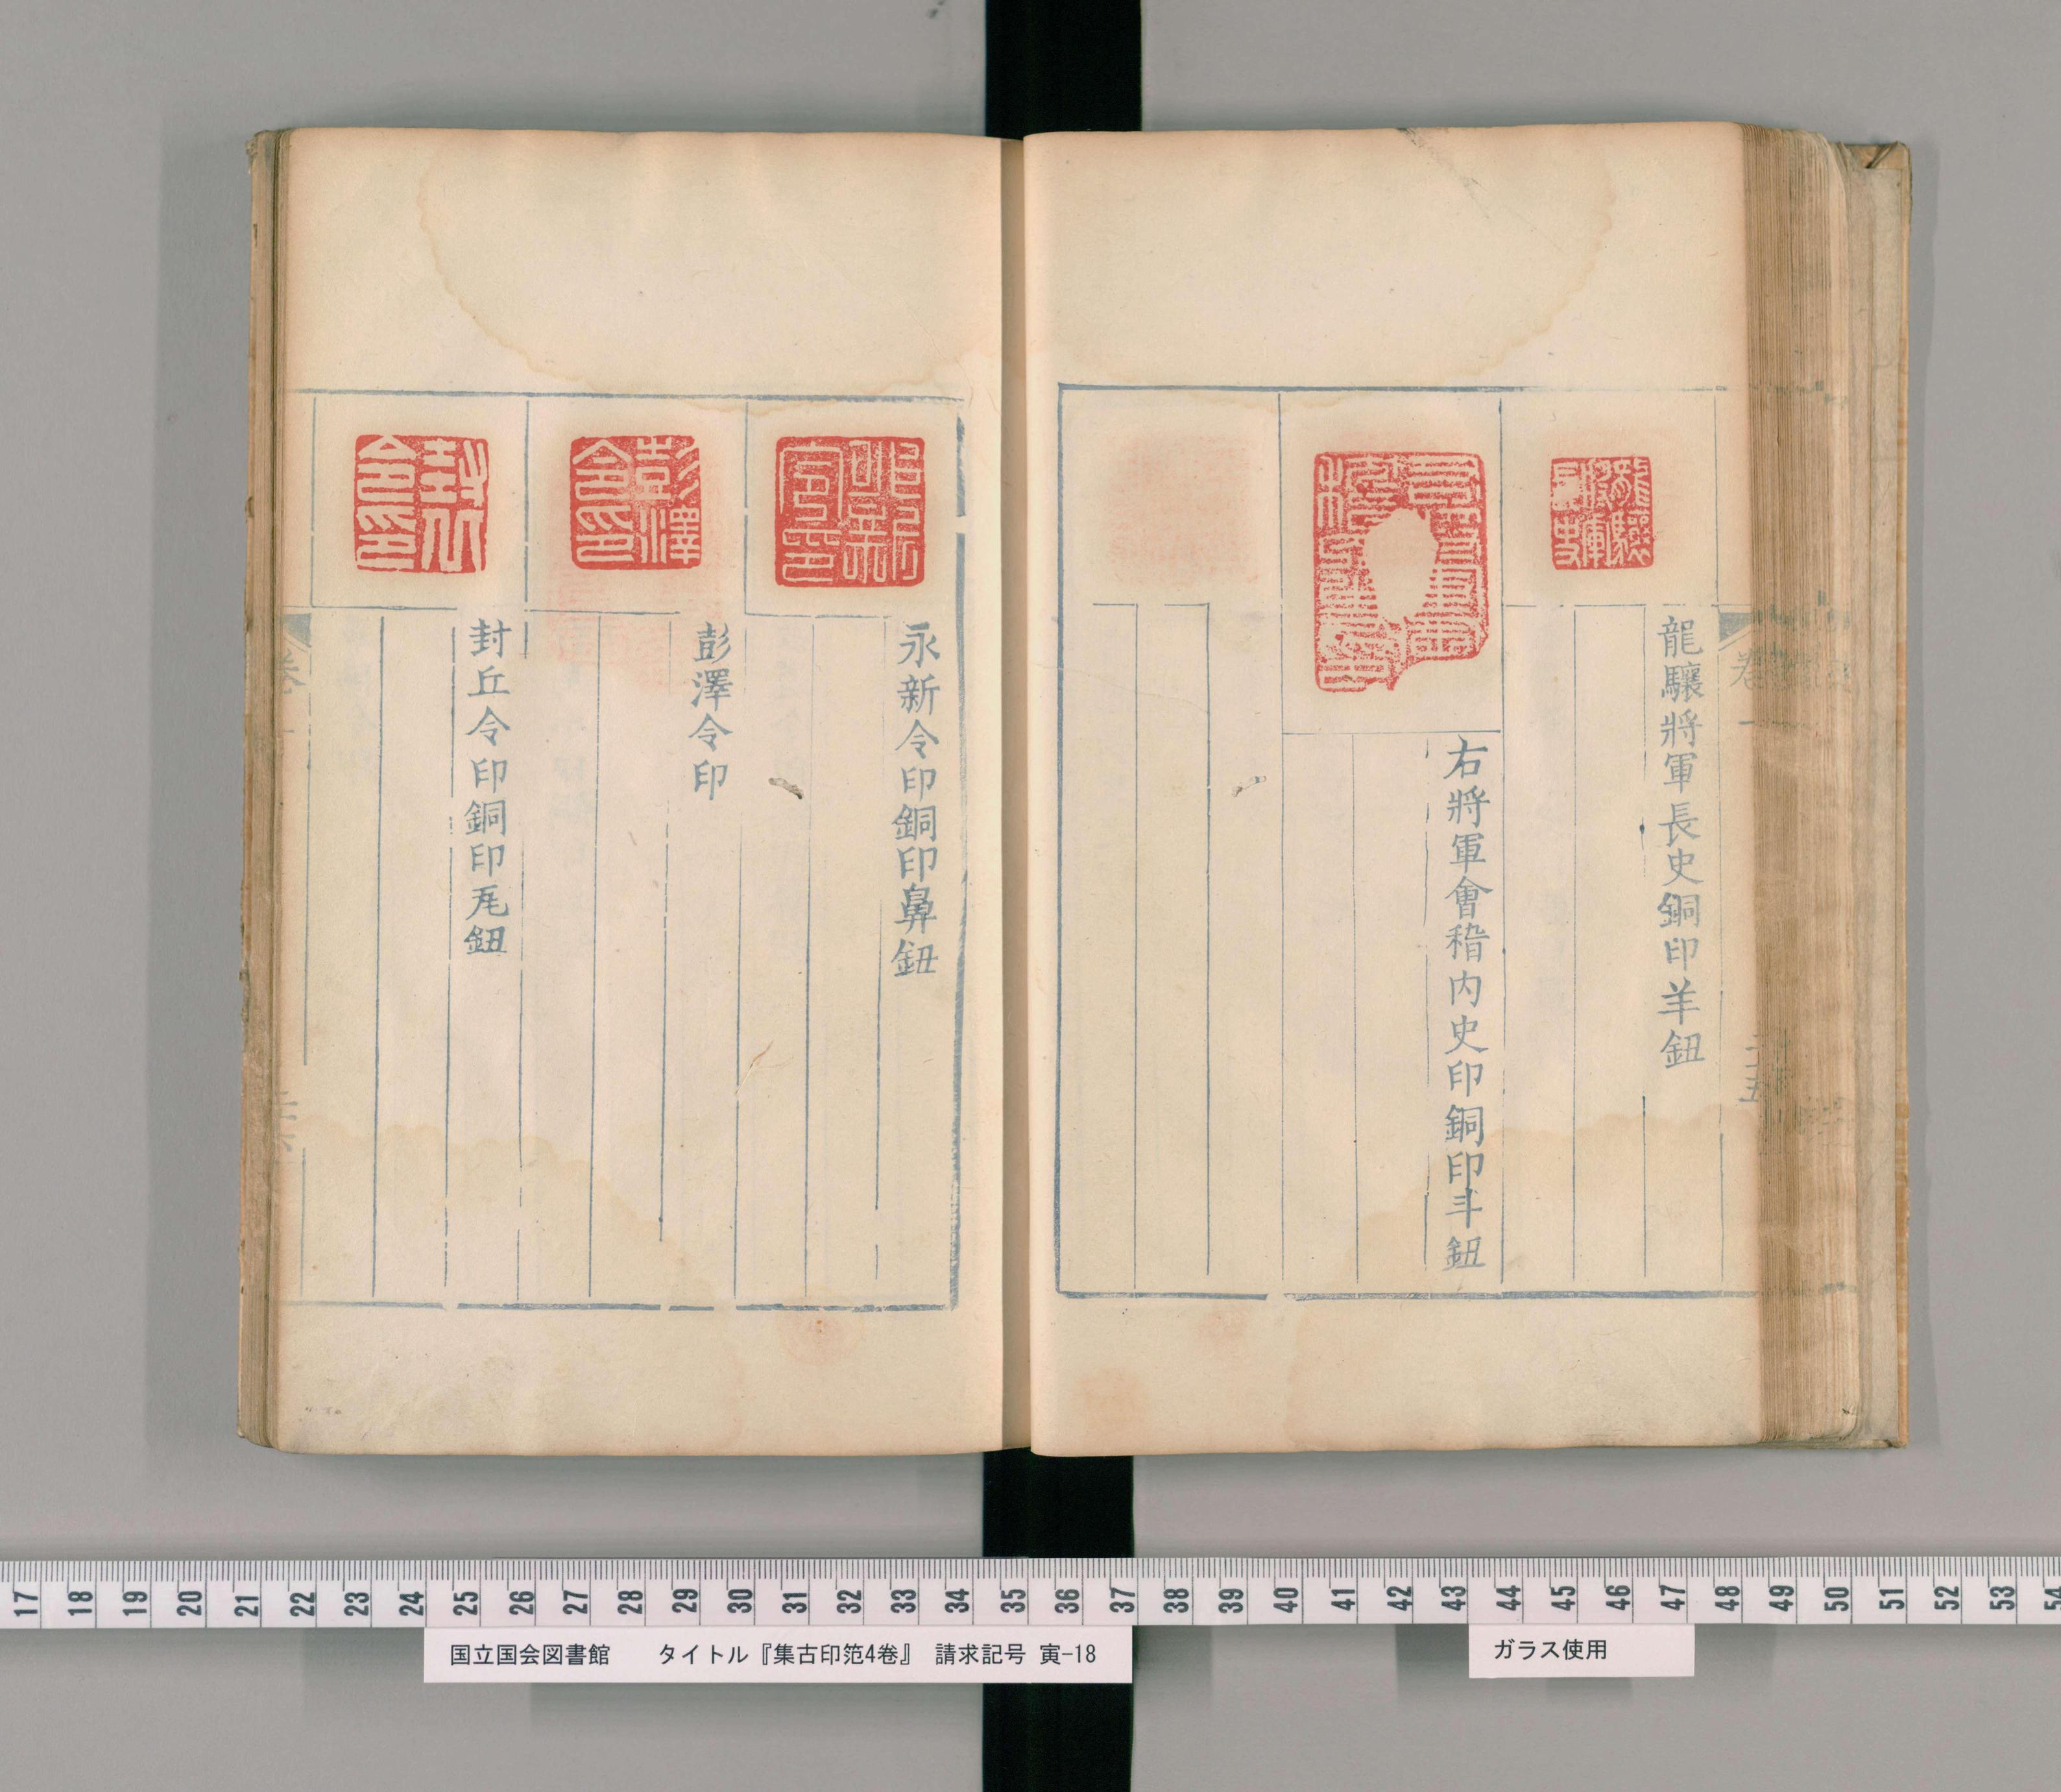 龍驤將軍長史
龍驤將軍長史銅印羊鈕
右將軍會稽内史印銅印斗鈕
卷一
二五
永新令印
永新令印銅印鼻鈕
彭澤令印
彭澤令印
封丘令印
封丘令印銅印龟鈕
卷一
二六
17 18 19 20 21 22 23 24 25 26 27 28 29 30 31 32 33 34 35 36 37 38 39 40 41 42 43 44 45 46 47 48 49 50 51 52 53 54
国立国会図書館 タイトル『集古印笵4巻』 請求記号 寅-18
ガラス使用